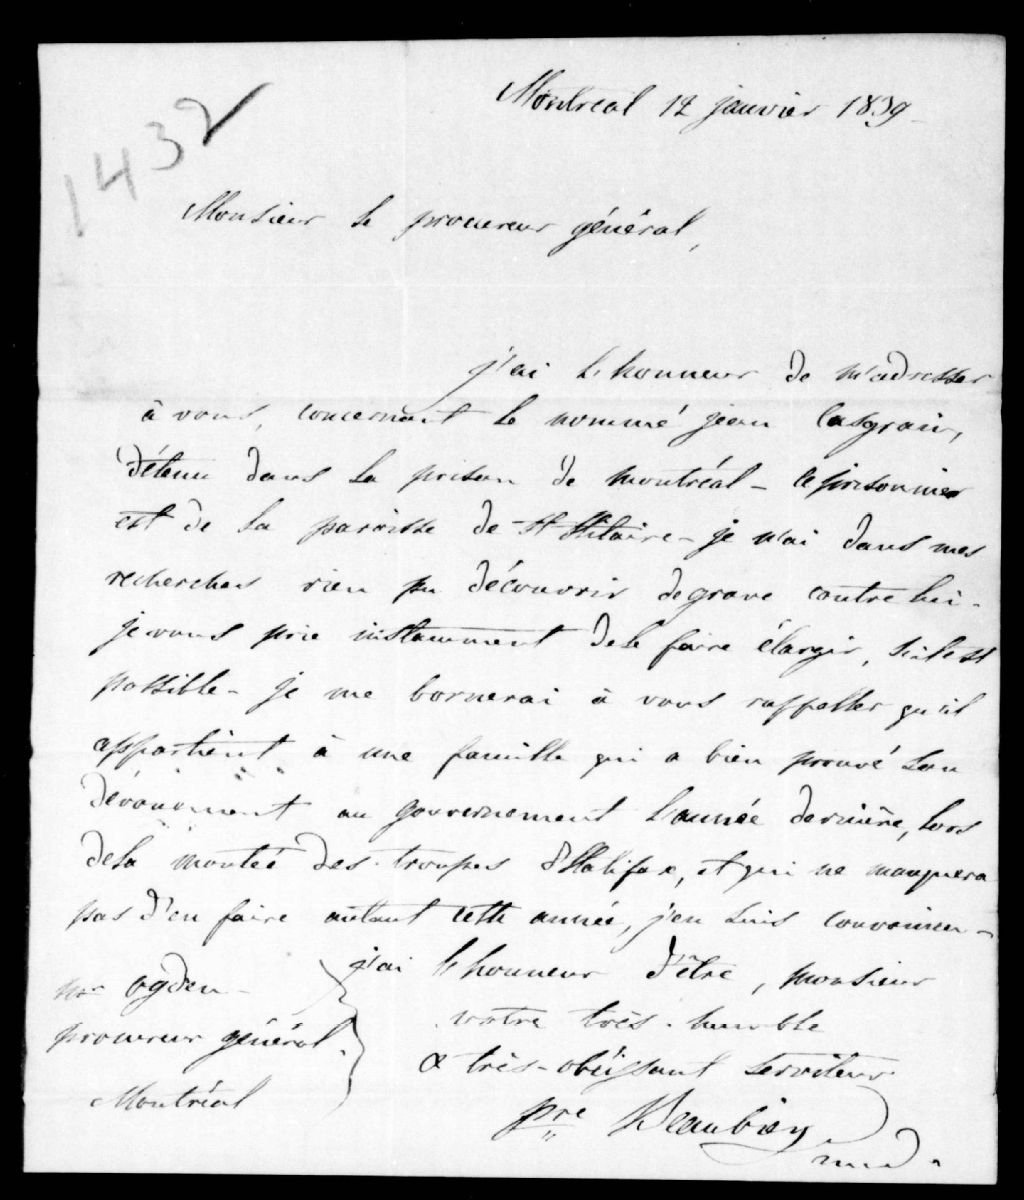 Montréal 12 janvier 1839-
1432
Monsieur le procureur général,
j'ai l'honneur de m'adresser
à vous, concernant le nommé jean Casgrain,
détenu dans la prison de montréal - ce prisonnier
est de la paroisse de St Hilaire - je n'ai dans mes
recherches rien pu découvrir de grave contre lui -
je vous prie instamment de le faire élargir, s'il est
possible - je me bornerai à vous rappeller qu'il
appartient à une famille qui a bien prouvé son
dévouement au gouvernement l'année dernière, lors
de la montée des troupes d'Halifax, et qui ne manquera
pas d'en faire autant cette année, j'en suis convaincu -
j'ai l'honneur d'être, monsieur
votre très-humble
& très-obéissant serviteur
pre Beaubien
m.d.
mr ogden -
procureur général.
Montréal